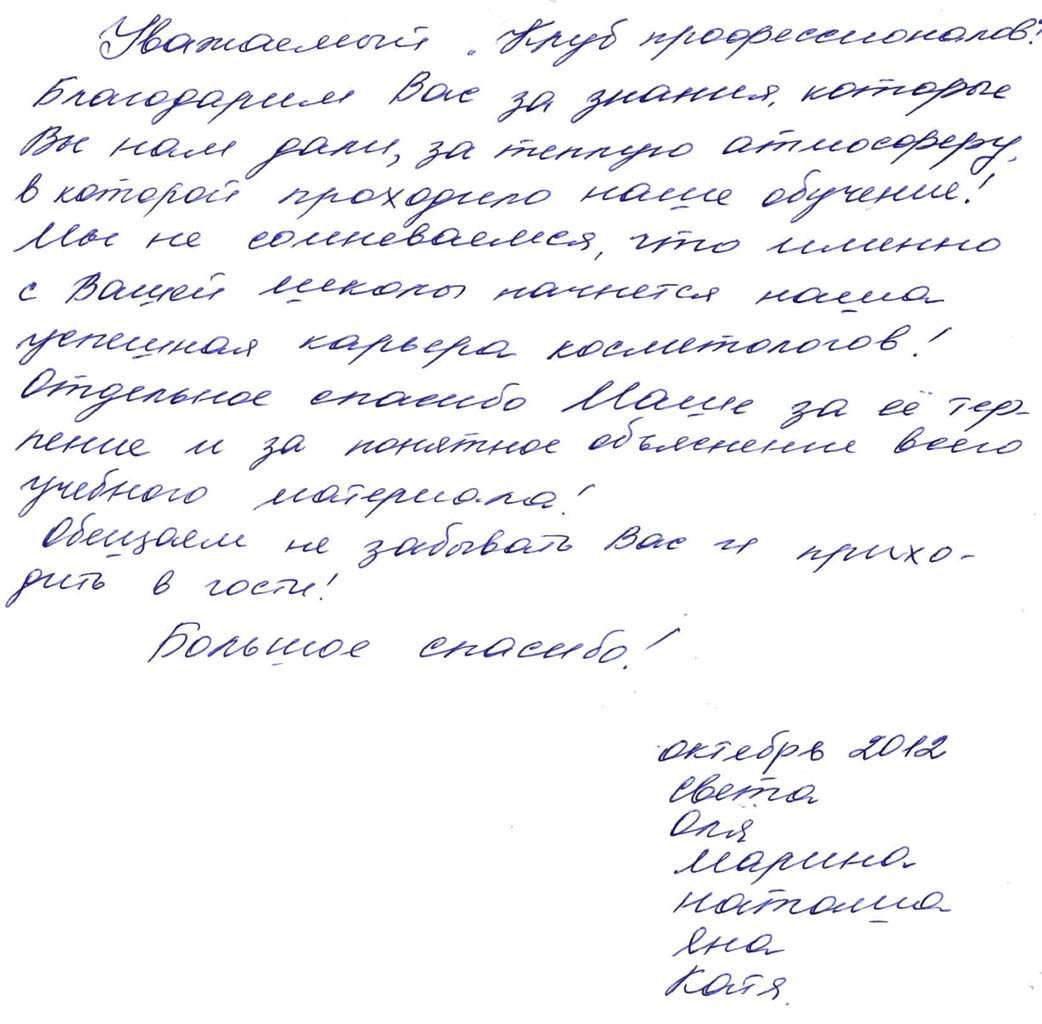 Уважаемый "Клуб профессионалов"!
Благодарим Вас за знания, которые
Вы нам дали, за теплую атмосферу,
в которой проходило наше обучение!
Мы не сомневаемся, что именно
с Вашей школы начнется наша
успешная карьера косметологов!
Отдельное спасибо Маше за её тер-
пение и за понятное объяснение всего
учебного материала!
Обещаем не забывать Вас и прихо-
дить в гости!
Большое спасибо!
октябрь 2012
Света
Оля
Марина
Наташа
Яна
Катя.